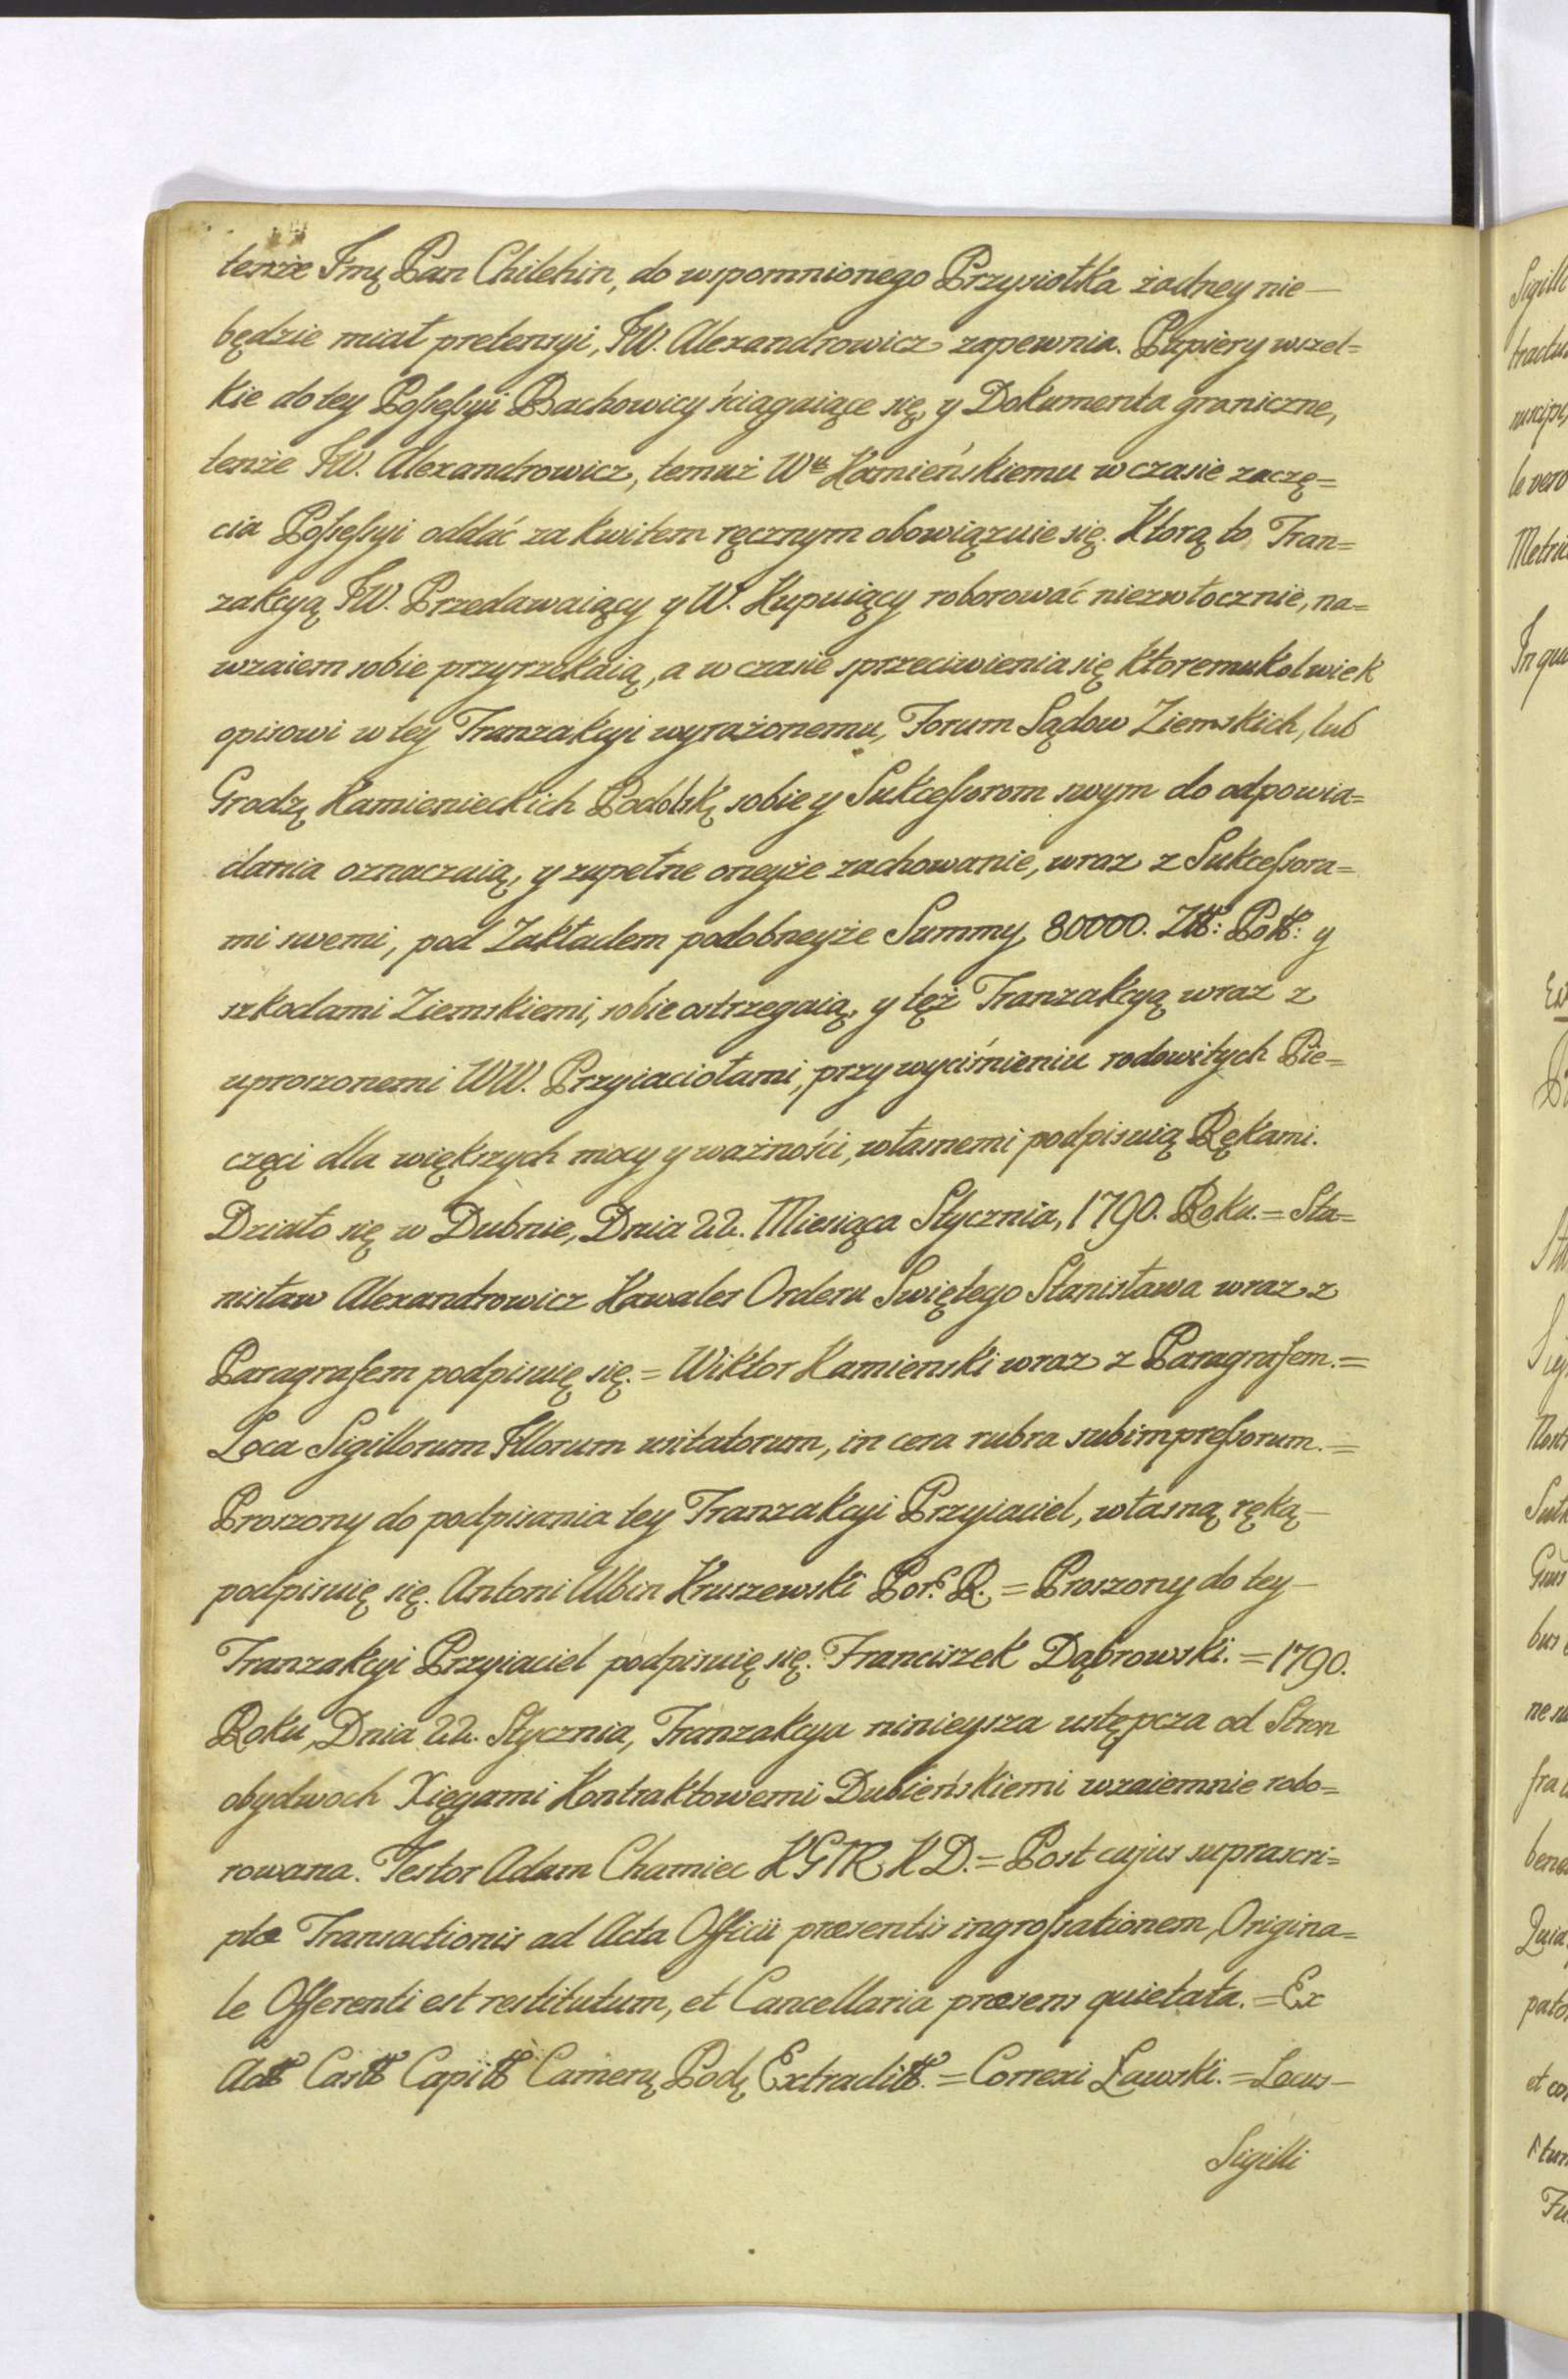 tenże Jmę Pan Chilehin, do wspomnionego Przysiołka żadney nie—
będzie miał pretensyi, JW. Alexandrowicz zapewnia. Papiery wszel=
kie do tey Poſseſsyi Bachowicy ściągaiące się, y Dokumenta graniczne,
tenże JW. Alexandrowicz, temuż Wu Kamieńskiemu w czasie zaczę=
cia Poſseſsyi oddać za kwitem ręcznym obowiązuie się. Ktorą to Tran=
zakcyą JW. Przedawaiący y W. Kupuiący roborować niezwłocznie, na=
wzaiem sobie przyrzekaią, a w czasie sprzeciwienia się ktoremukolwiek
opisowi w tey Tranzakcyi wyrażonemu, Forum Sądow Ziemskich, lub
Grodz. Kamienieckich Podolsk. sobie y Sukceſsorom swym do odpowia=
dania oznaczaią, y zupełne oneyże zachowanie, wraz z Sukceſsora=
mi swemi, pod Zakładem podobneyże Summy 80000. Złł: Poll: y
szkodami Ziemskiemi, sobie ostrzegaią, y tęż Tranzakcyą wraz z
uproszonemi WW. Przyiaciołami, przy wyciśnieniu rodowitych Pie=
częci dla większych mocy y ważności, własnemi podpisuią Rękami.
Działo się w Dubnie, Dnia 22. Miesiąca Stycznia, 1790. Roku. = Sta=
nisław Alexandrowicz Kawaler Orderu Swiętego Stanisława wraz z
Paragrafem podpisuię się. = Wiktor Kamienski wraz z Paragrafem. =
Loca Sigillorum Illorum usitatorum, in cera rubra subimpreſsorum. =
Proszony do podpisania tey Tranzakcyi Przyiaciel, własną ręką—
podpisuię się. Antoni Albin Kruszewski Por. R. = Proszony do tey—
Tranzakcyi Przyiaciel podpisuię się. Franciszek Dąbrowski. = 1790.
Roku, Dnia 22. Stycznia, Tranzakcya ninieysza ustępcza od Stron
obydwoch Xięgami Kontraktowemi Dubieńskiemi wzaiemnie robo=
rowana. Testor Adam Chamiec KGTR KD. = Post cujus suprascri=
ptæ Transactionis ad Acta Officii præsentis ingroſsationem, Origina=
le Offerenti est restitutum, et Cancellaria præsens quietata. = Ex
Actt Castt Capitt Camen. Pod. Extraditt. = Correxi Ławski. = Locus—
Sigilli